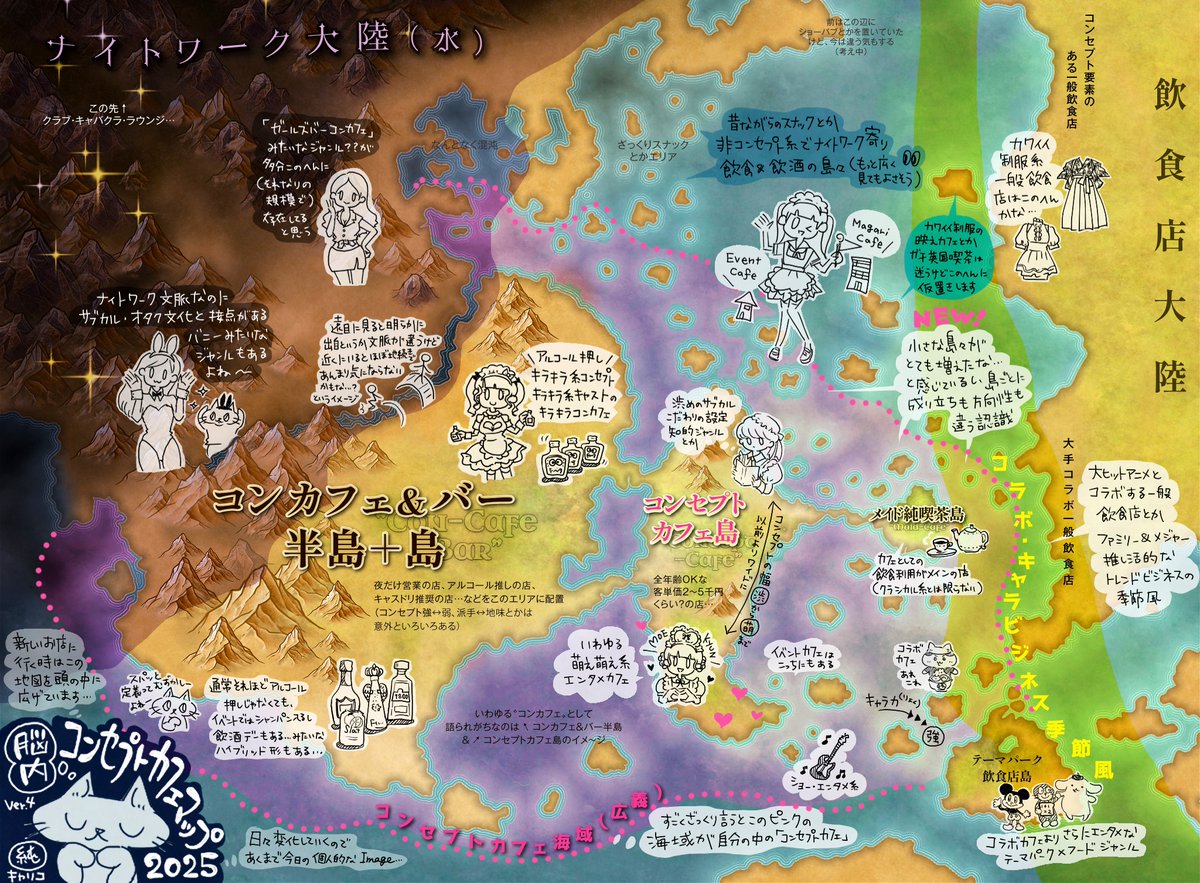 ナイトワーク大陸(水)
この先↑
クラブ・キャバクラ・ラウンジ…
「ガールズバーコンカフェ」
みたいなジャンル??が
多分このへんに
(それなりの
規模で)
存在してる
と思う
なんとなく混沌
ざっくりスナック
とかエリア
前はこの辺に
ショーパブとかを置いていた
けど、今は違う気もする
(考え中)
昔ながらのスナックとか
非コンセプト系でナイトワーク寄り
飲食&飲酒の島々(もっと広く
見てもよさそう)
コンセプト要素の
ある一般飲食店
飲食店大陸
カワイイ
制服系
一般飲食
店はこのへん
かな…
カワイイ制服の
映えカフェとか
ガチ英国喫茶は
迷うけどこのへんに
仮置きします
Event
Cafe
Magari
Cafe
NEW!
小さな島々が
とても増えたな…
と感じているし、島ごとに
成り立ちも方向性も
違う認識
ナイトワーク文脈なのに
サブカル・オタク文化と接点がある
バニーみたいな
ジャンルもある
よね〜
遠目に見ると明らかに
出自というか文脈が違うけど
近くにいるとほぼ地続きで
あんまり気にならない
かもな…?
というイメージ
アルコール押し
キラキラ系コンセプト
キラキラ系キャストの
キラキラコンカフェ
渋めのサブカル
こだわりの設定
知的ジャンル
とか
コンカフェ&バー
半島+島
"Con-Cafe
Bar"
夜だけ営業の店、アルコール推しの店、
キャスドリ推奨の店…などをこのエリアに配置
(コンセプト強↔弱、派手↔地味とかは
意外といろいろある)
コンセプト
カフェ島
-Cafe"
全年齢OKな
客単価2~5千円
くらい?の店…
コンセプトの幅 渋から萌まで
以前よりワイドに
メイド純喫茶島
カフェとしての
飲食利用がメインの店
(クラシカル系とは限らない)
コラボ・キャラビジネス季節風
大手コラボ一般飲食店
大ヒットアニメと
コラボする一般
飲食店とか
ファミリー&メジャー
推し活的な
トレンドビジネスの
季節風
新しいお店に
行く時はこの
地図を頭の中に
広げています…
スパッと
定義ってむずかしー
よね
通常それほどアルコール
押しじゃなくても、
イベントではシャンパンするし
飲酒デーもある…みたいな
ハイブリッド形もある…
いわゆる
萌え萌え系
エンタメカフェ
MOE
KYUN
イベントカフェは
こっちにもある
コラボ
カフェ
あれ
これ
キャラ力(りょく)
強
いわゆる"コンカフェ"として
語られがちなのは↖コンカフェ&バー半島
&↗コンセプトカフェ島のイメージ
ショー・エンタメ系
テーマパーク
飲食店島
コンセプトカフェ海域(広義)
すごくざっくり言うとこのピンクの
海域が自分の中の「コンセプトカフェ」
コラボカフェよりさらにエンタメな
テーマパーク×フードジャンル
脳内
コンセプトカフェマップ
2025
ver.4
純
キャリコ
日々変化していくので
あくまで今日の個人的なImage…